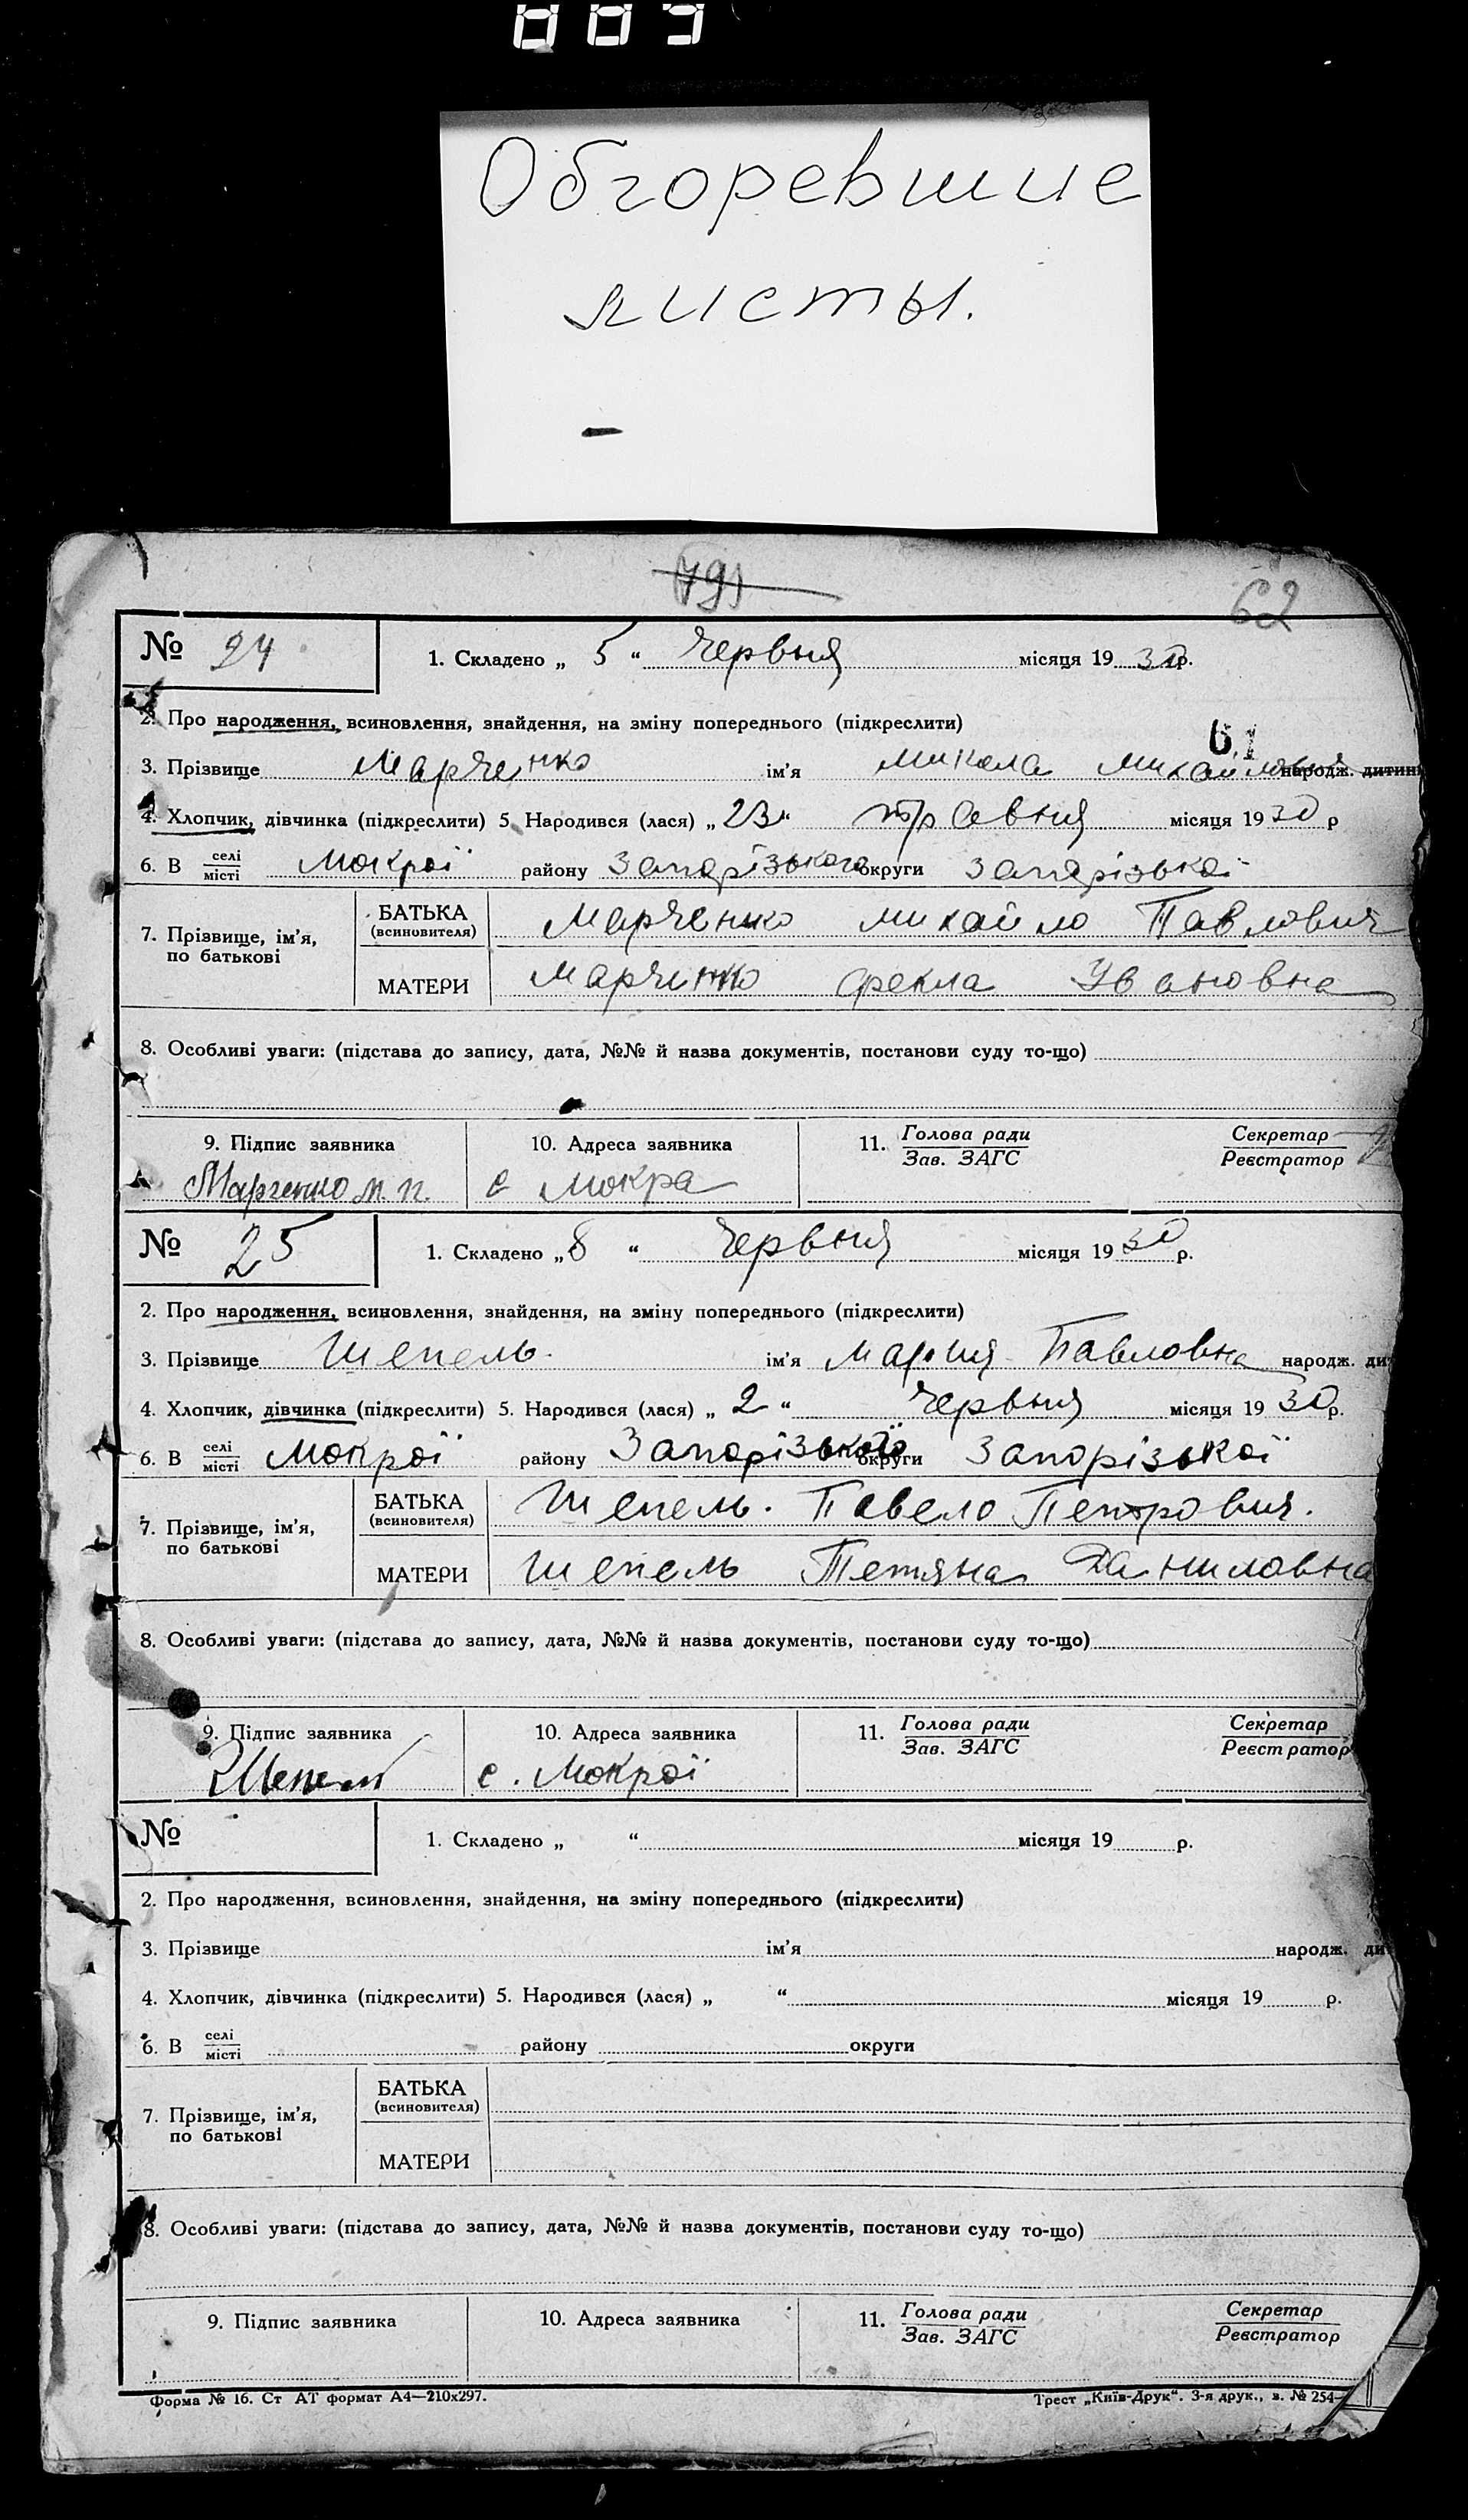 009
Обгоревшие
листы.
(79)
62
№ 24 1. Складено „ 5 “ Червня місяця 19 30 р.
2. Про народження, всиновлення, знайдення, на зміну попереднього (підкреслити)
61
3. Прізвище Марченко ім'я Микола Михайлович народж. дитини
4. Хлопчик, дівчинка (підкреслити) 5. Народився (лася) „ 23 “ травня місяця 19 30 р
6. В селі/місті Мокрої району Запорізького округи Запорізької
7. Прізвище, ім'я, по батькові БАТЬКА (всиновителя) Марченко Михайло Павлович
МАТЕРИ Марченко Фекла Ивановна
8. Особливі уваги: (підстава до запису, дата, №№ й назва документів, постанови суду то-що)
9. Підпис заявника 10. Адреса заявника 11. Голова ради/Зав. ЗАГС Секретар/Реєстратор
Марченко М. П. с Мокра
№ 25 1. Складено „ 8 “ Червня місяця 19 30 р.
2. Про народження, всиновлення, знайдення, на зміну попереднього (підкреслити)
3. Прізвище Шепель ім'я Мария Павловна народж. ди
4. Хлопчик, дівчинка (підкреслити) 5. Народився (лася) „ 2 “ Червня місяця 19 30 р.
6. В селі/місті Мокрої району Запорізького округи Запорізької
7. Прізвище, ім'я, по батькові БАТЬКА (всиновителя) Шепель. Павело Петрович.
МАТЕРИ Шепель Тетяна Даниловна
8. Особливі уваги: (підстава до запису, дата, №№ й назва документів, постанови суду то-що)
9. Підпис заявника 10. Адреса заявника 11. Голова ради/Зав. ЗАГС Секретар/Реєстратор
с. Мокрої
№ 1. Складено „ “ місяця 19 р.
2. Про народження, всиновлення, знайдення, на зміну попереднього (підкреслити)
3. Прізвище ім'я народж. ди
4. Хлопчик, дівчинка (підкреслити) 5. Народився (лася) „ “ місяця 19 р.
6. В селі/місті району округи
7. Прізвище, ім'я, по батькові БАТЬКА (всиновителя)
МАТЕРИ
8. Особливі уваги: (підстава до запису, дата, №№ й назва документів, постанови суду то-що)
9. Підпис заявника 10. Адреса заявника 11. Голова ради/Зав. ЗАГС Секретар/Реєстратор
Форма № 16. Ст АТ формат А4—210х297. Трест „Київ-Друк“. 3-я друк., з. № 254—